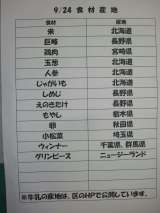 9/24 食材産地
食材 産地
米 北海道
巨峰 長野県
鶏肉 宮崎県
玉葱 北海道
人参 北海道
じゃがいも 北海道
しめじ 長野県
えのきたけ 長野県
もやし 栃木県
卵 秋田県
小松菜 埼玉県
ウィンナー 千葉県、群馬県
グリンピース ニュージーランド
※牛乳の産地は、区のHPで公開しています。